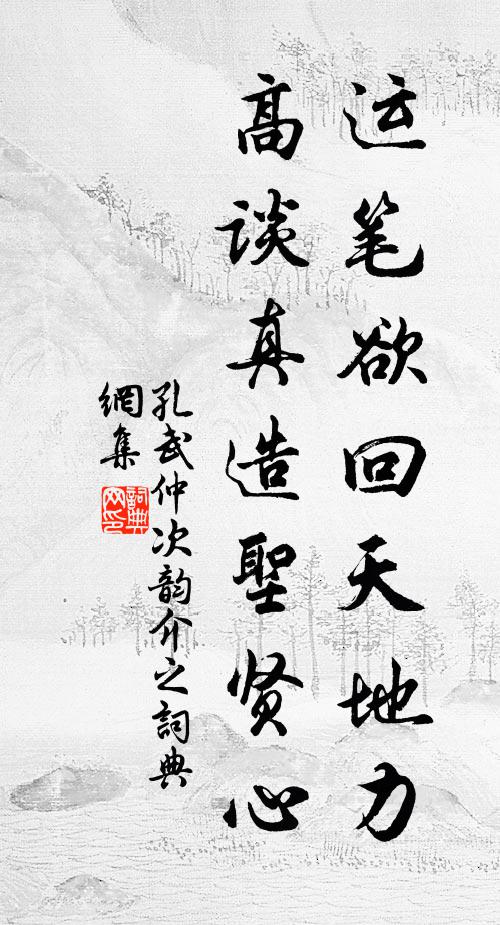 运笔欲回天地力
高谈真造聖贤心
孔武仲次韵介之詞典
網集
詞典
网印